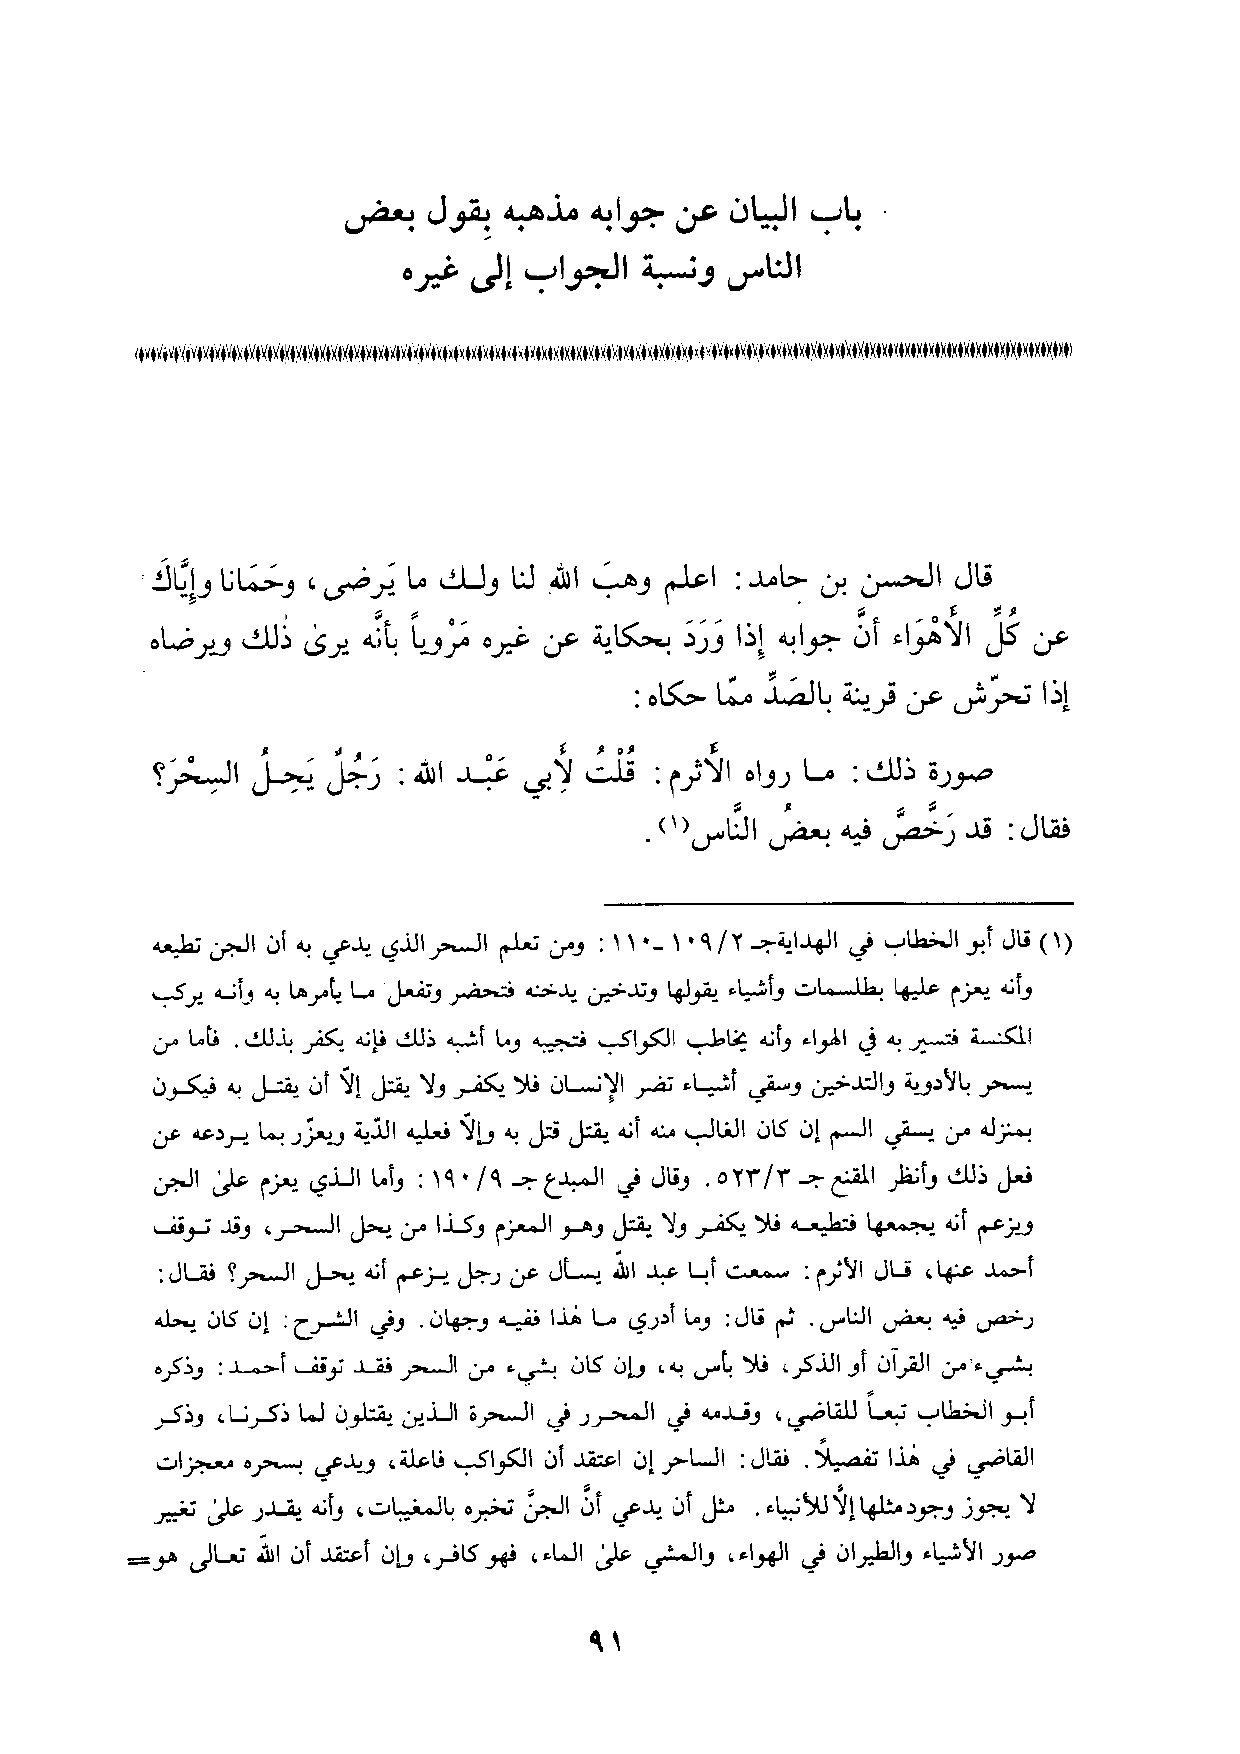 باب البيان عن جوابه مذهبه بقول بعض
الناس ونسبة الجواب إلى غيره
قال الحسن بن حامد: اعلم وهبَ الله لنا ولك ما يَرضى، وحَمَانا وإيَّاكَ
عن كُلِّ الأَهْوَاء أنَّ جوابه إذا وَرَدَ بحكاية عن غيره مَرْوياً بأنَّه يرىٰ ذٰلك ويرضاه
إذا تحرّش عن قرينة بالصَدِّ ممّا حكاه:
صورة ذلك: ما رواه الأثرم: قُلْتُ لأبي عَبْد الله: رَجُلٌ يَحِلُ السِحْرَ؟
فقال: قد رَخَّصَّ فيه بعضُ النَّاس(١).
(١) قال أبو الخطاب في الهدايةجـ ٢/ ١٠٩ـ ١١٠: ومن تعلم السحر الذي يدعي به أن الجن تطيعه
وأنه يعزم عليها بطلسمات وأشياء يقولها وتدخين يدخنه فتحضر وتفعل ما يأمرها به وأنه يركب
المكنسة فتسير به في الهواء وأنه يخاطب الكواكب فتجيبه وما أشبه ذلك فإنه يكفر بذلك. فأما من
يسحر بالأدوية والتدخين وسقي أشياء تضر الإنسان فلا يكفر ولا يقتل إلّا أن يقتل به فيكون
بمنزله من يسقي السم إن كان الغالب منه أنه يقتل قتل به وإلّا فعليه الدّية ويعزّر بما يردعه عن
فعل ذلك وأنظر المقنع جـ ٥٢٣/٣. وقال في المبدع جـ ١٩٠/٩: وأما الذي يعزم علىٰ الجن
ويزعم أنه يجمعها فتطيعه فلا يكفر ولا يقتل وهو المعزم وكذا من يحل السحر، وقد توقف
أحمد عنها، قال الأثرم: سمعت أبا عبد الله يسأل عن رجل يزعم أنه يحل السحر؟ فقال:
رخص فيه بعض الناس. ثم قال: وما أدري ما هٰذا ففيه وجهان. وفي الشرح: إن كان يحله
بشيء من القرآن أو الذكر، فلا بأس به، وإن كان بشيء من السحر فقد توقف أحمد: وذكره
أبو الخطاب تبعاً للقاضي، وقدمه في المحرر في السحرة الذين يقتلون لما ذكرنا، وذكر
القاضي في هٰذا تفصيلاً. فقال: الساحر إن اعتقد أن الكواكب فاعلة، ويدعي بسحره معجزات
لا يجوز وجود مثلها إلّا للأنبياء. مثل أن يدعي أنَّ الجنَّ تخبره بالمغيبات، وأنه يقدر علىٰ تغيير
صور الأشياء والطيران في الهواء، والمشي علىٰ الماء، فهو كافر، وإن أعتقد أن الله تعالى هو=
٩١